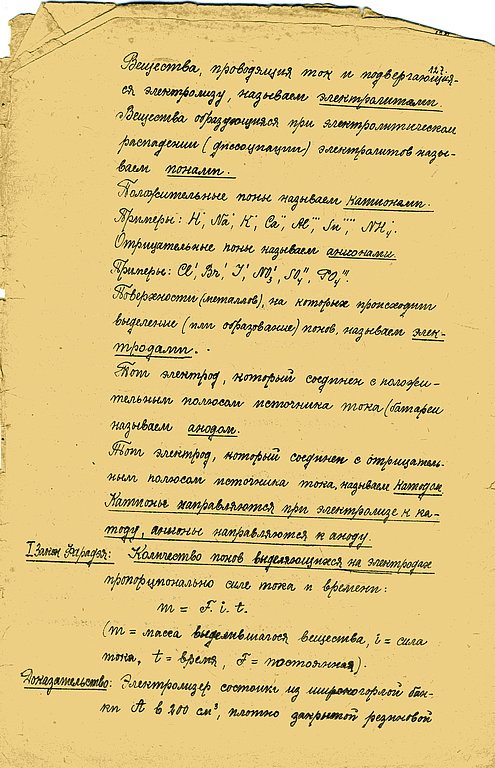 127.
Вещества, проводящия ток и подвергающия-
ся электролизу, называем электролитами.
Вещества образующияся при электролитическом
распадении (диссоциации) электролитов назы-
ваем ионами.
Положительные ионы называем катионами.
Примеры: H˙, Na˙, K˙, Ca˙˙, Al˙˙˙, Sn˙˙˙˙, NH₄˙.
Отрицательные ионы называем анионами.
Примеры: Cl', Br', J', NO₃', SO₄'', PO₄'''.
Поверхности (металлов), на которых происходит
выделение (или образование) ионов, называем элек-
тродами.
Тот электрод, который соединен с положи-
тельным полюсом источника тока (батареи
называем анодом.
Тот электрод, который соединен с отрицатель-
ным полюсом источника тока, называем катодом
Катионы направляются при электролизе к ка-
тоду, анионы направляются к аноду.
I Закон Фарадея: Количество ионов выделяющихся на электродах
пропорционально силе тока и времени:
m = F. i. t.
(m = масса выделившагося вещества, i = сила
тока, t = время, F = постоянная).
Доказательство: Электролизер состоит из широкогорлой бан-
ки A в 200 см³, плотно закрытой резиновой